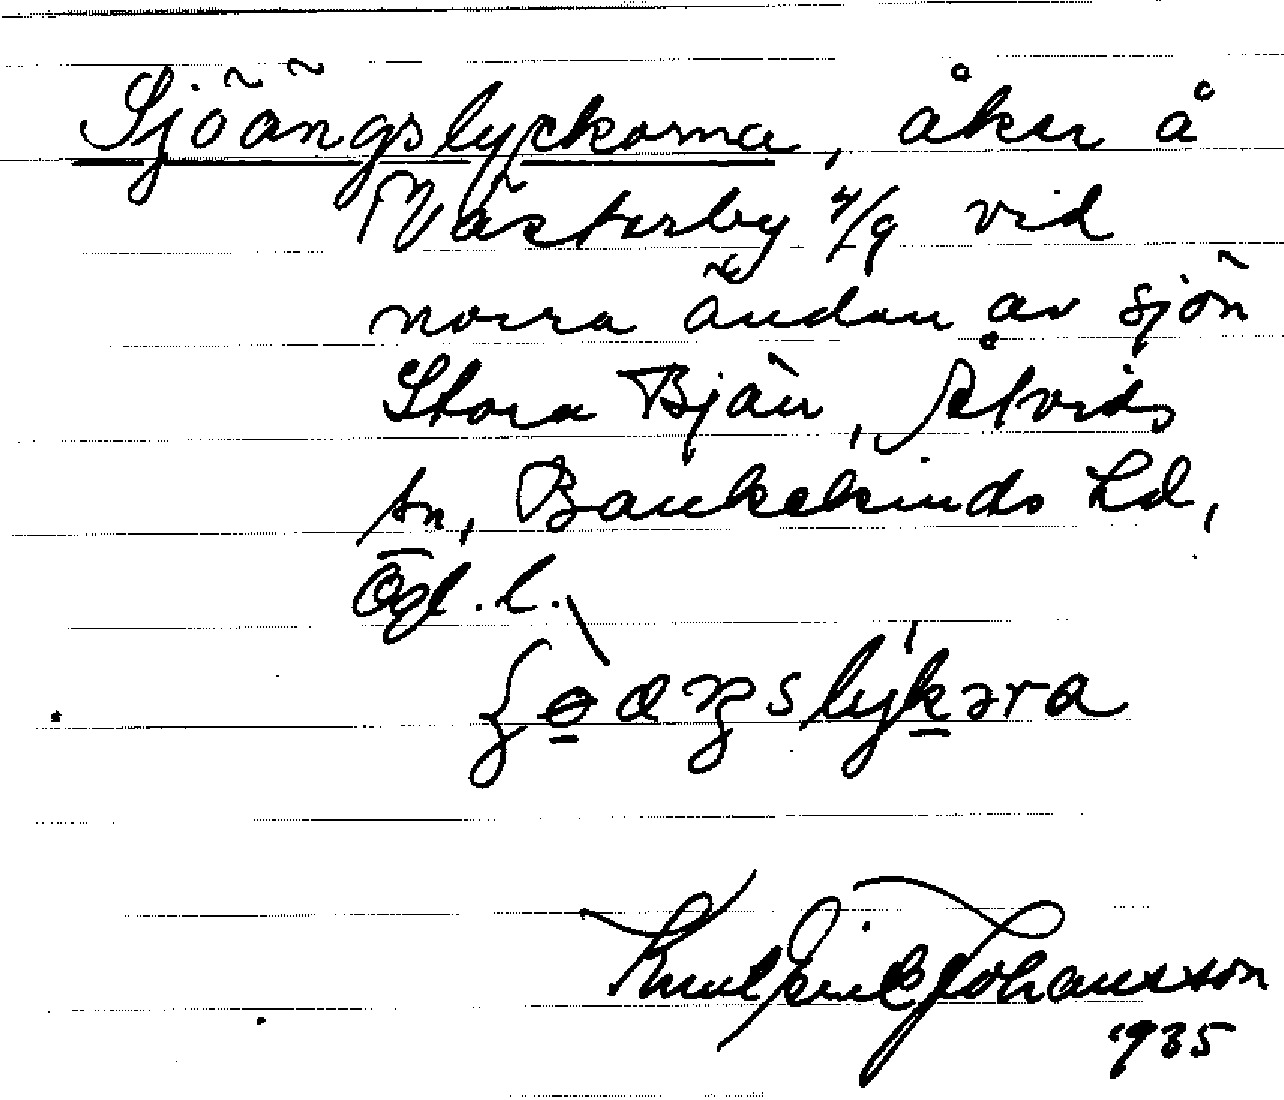 Sjöängslyckorna, åker å
Västerby 4/9 vid
norra ändan av sjön
Stora Bjän, Åtvids
sn, Bankekinds hd,
Ögl. l.
Knut Erik Johansson
1935